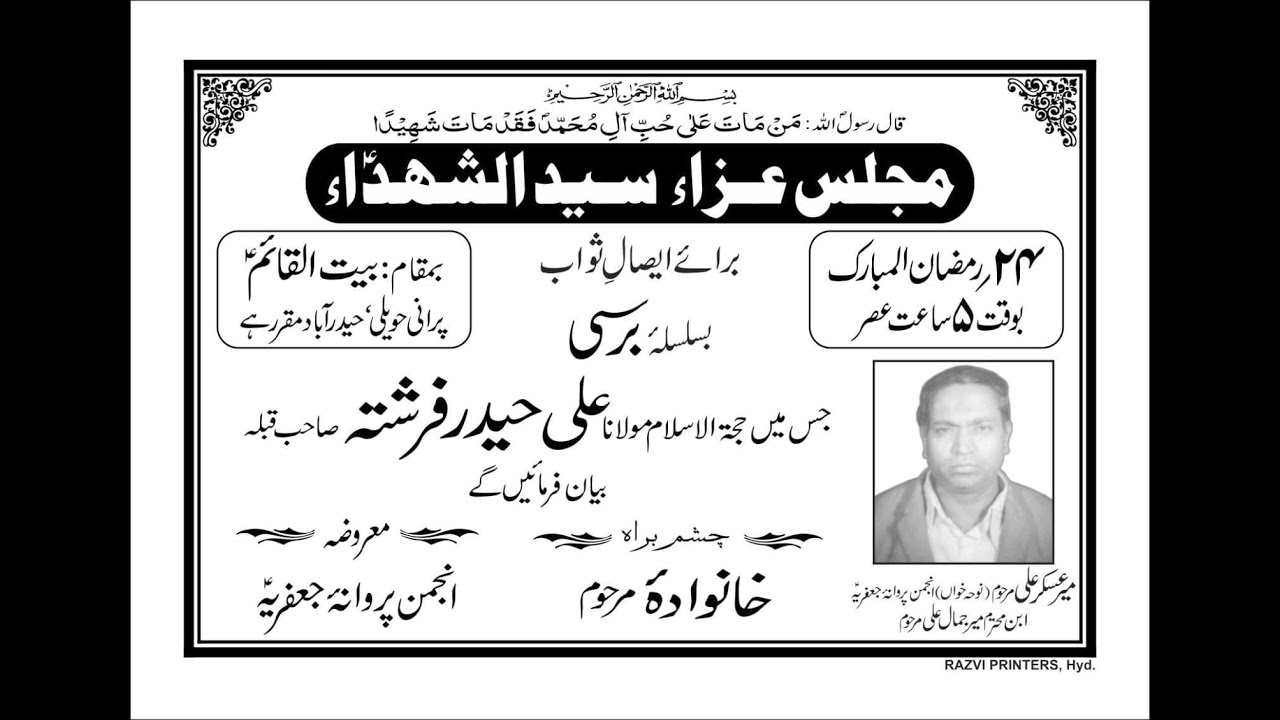 بسم اللہ الرحمٰن الرحیم
قال رسولؐ اللہ: مَنْ مَاتَ عَلٰی حُبِّ آلِ مُحَمَّدؐ فَقَدْ مَاتَ شَهِيْدًا
مجلس عزاء سید الشھداءؑ
۲۴؍رمضان المبارک
بوقت ۵ ساعت عصر
برائے ایصالِ ثواب
بسلسلۂ برسی
بمقام: بیت القائمؑ
پرانی حویلی، حیدرآباد مقرر ہے
جس میں حجۃ الاسلام مولانا علی حیدر فرشتہ صاحب قبلہ
بیان فرمائیں گے
چشم براہ
خانوادۂ مرحوم
معروضہ
انجمن پروانۂ جعفریہؑ
میر عسکر علی مرحوم (نوحہ خواں) انجمن پروانۂ جعفریہؑ
ابن محترم میر جمال علی مرحوم
RAZVI PRINTERS, Hyd.